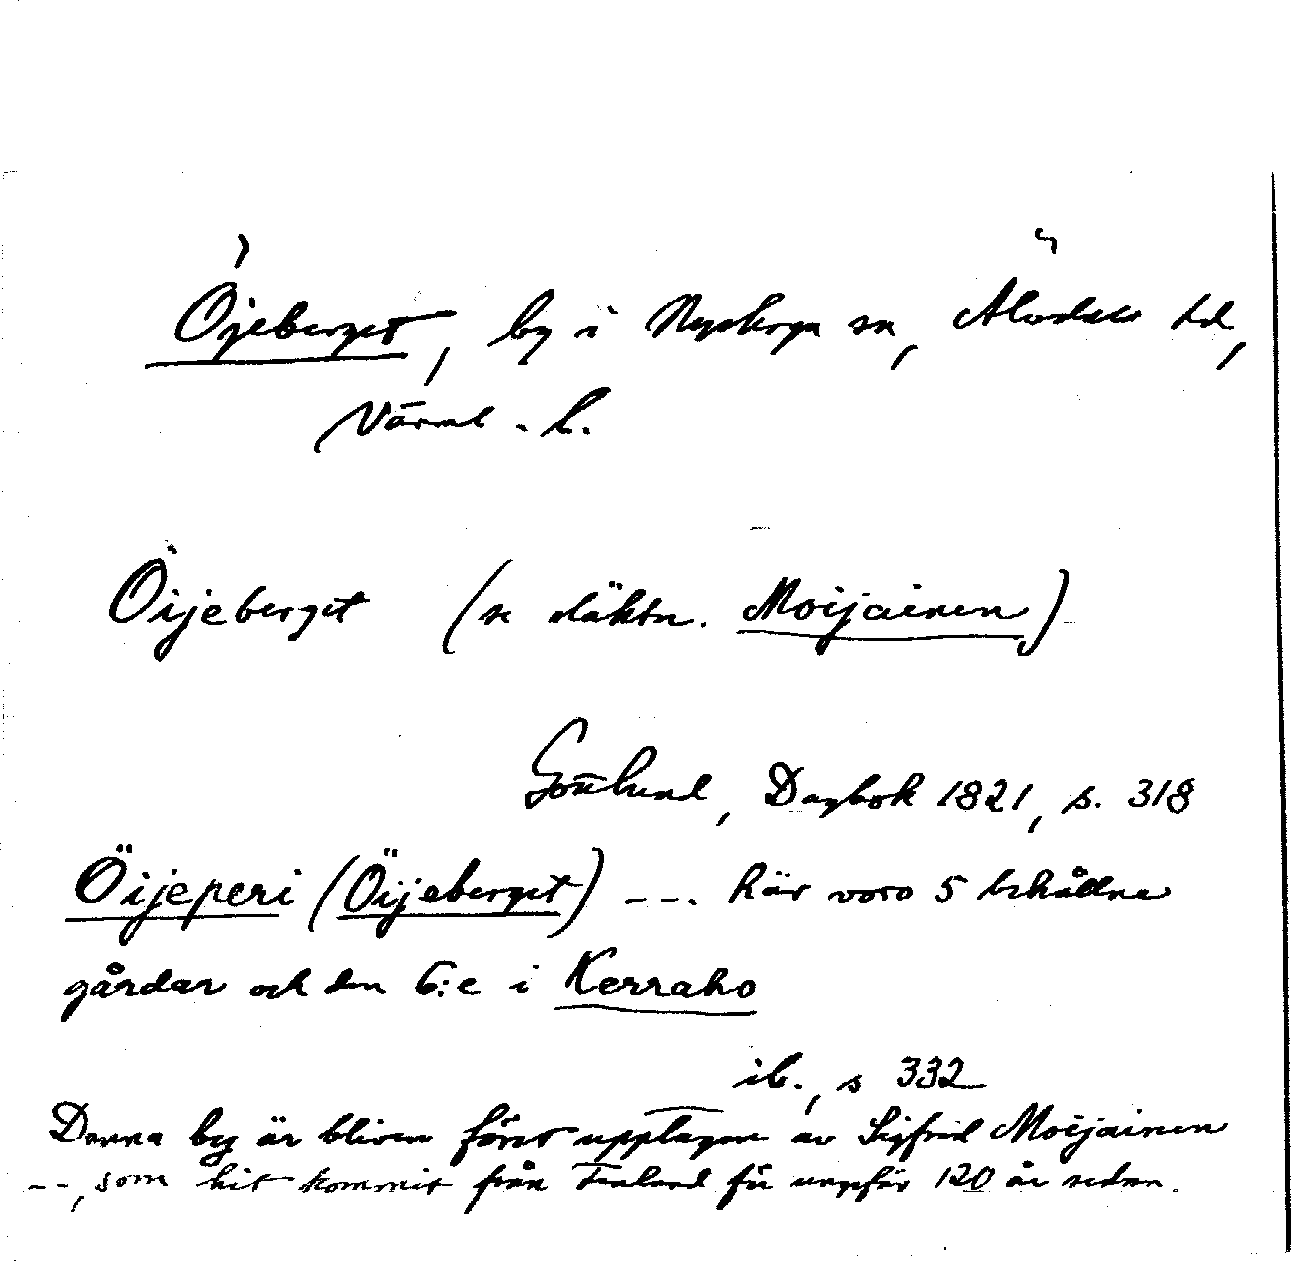 Öjeberget, by i Nyskoga sn, Älvdals hd,
Värml. l.
Öijeberget (se släktn. Moijainen)
Gottlund, Dagbok 1821, s. 318
Öijeperi (Öijeberget) --- här voro 5 behållne
gårdar och den 6:e i Kerraho
ib., s 332
Denna by är bliven först upptagen av Sigfrid Moijainen
--, som hit kommit från Finland för ungefär 120 år sedan.